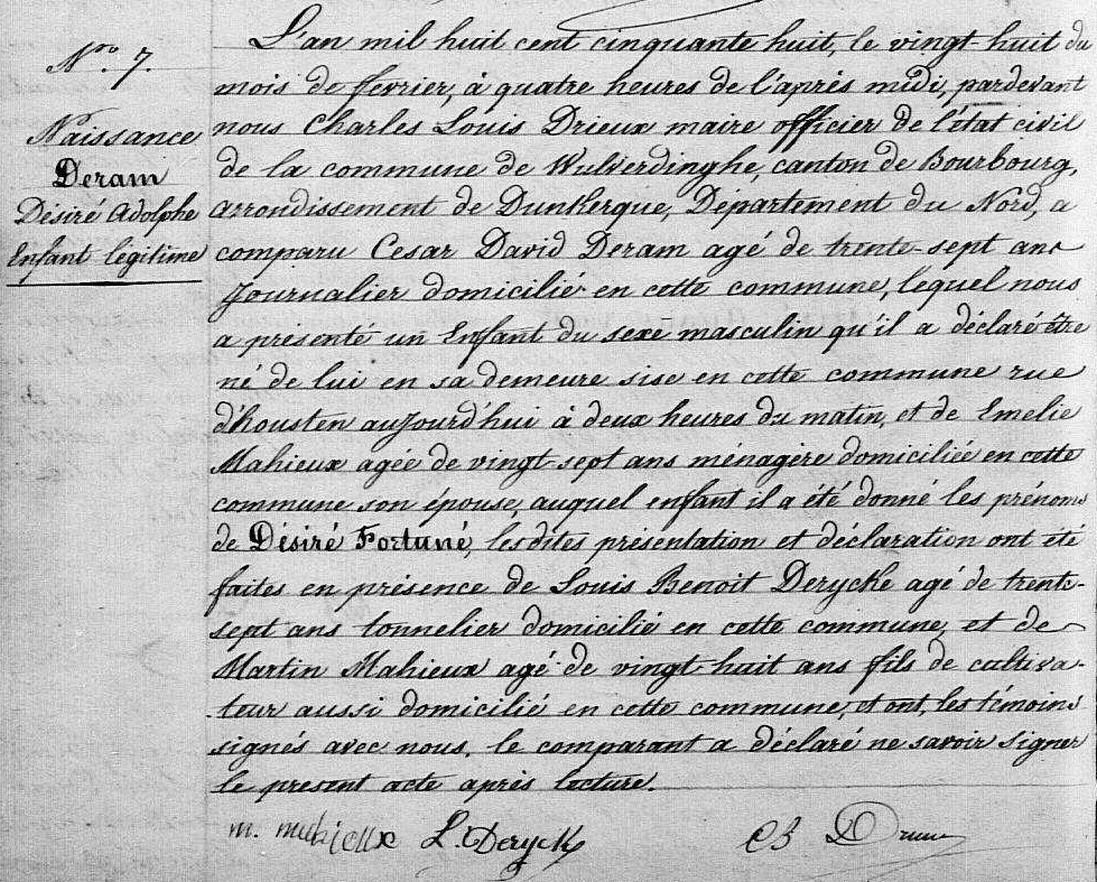 Nro 7.
Naissance
Deram
Désiré Adolphe
Enfant légitime
L'an mil huit cent cinquante huit, le vingt-huit du
mois de fevrier, à quatre heures de l'après midi, pardevant
nous Charles Louis Drieux maire officier de l'état civil
de la commune de Wulverdinghe, canton de Bourbourg,
arrondissement de Dunkerque, Département du Nord, a
comparu Cesar David Deram agé de trente-sept ans
Journalier domicilié en cette commune, lequel nous
a présenté un Enfant du sexe masculin qu'il a déclaré être
né de lui en sa demeure sise en cette commune rue
d'housten aujourd'hui à deux heures du matin, et de Emelie
Mahieux agée de vingt-sept ans ménagère domiciliée en cette
commune son épouse, auquel enfant il a été donné les prénoms
de Désiré Fortuné, lesdites présentation et déclaration ont été
faites en présence de Louis Benoit Derycke agé de trente-
sept ans tonnelier domicilié en cette commune, et de
Martin Mahieux agé de vingt-huit ans fils de cultiva-
teur aussi domicilié en cette commune, et ont, les témoins
signés avec nous, le comparant a déclaré ne savoir signer
le present acte après lecture.
m. mahieux L. Deryck